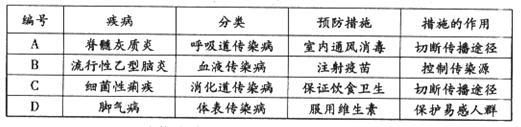 编号 疾病 分类 预防措施 措施的作用
A 脊髓灰质炎 呼吸道传染病 室内通风消毒 切断传播途径
B 流行性乙型脑炎 血液传染病 注射疫苗 控制传染源
C 细菌性痢疾 消化道传染病 保证饮食卫生 切断传播途径
D 脚气病 体表传染病 服用维生素 保护易感人群